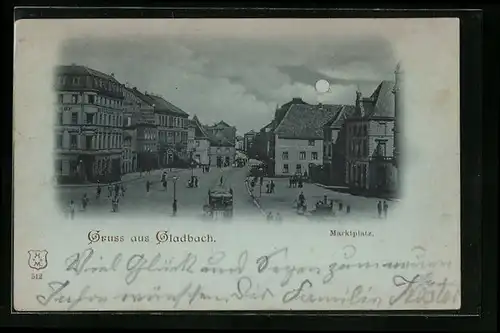 Gruss aus Gladbach.
Marktplatz.
512
Viel Glück und Segen zum neuen
Jahre wünschen Dir Familie